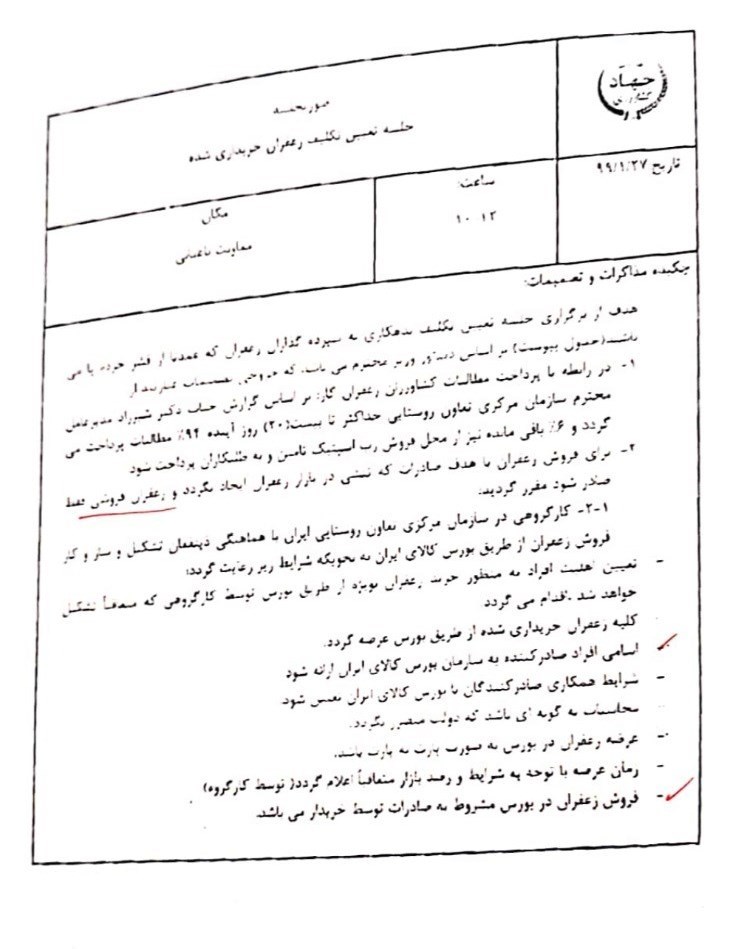 جهاد
کشاورزی
صورتجلسه
جلسه تعیین تکلیف زعفران خریداری شده
تاریخ ۹۹/۱/۲۷
ساعت:
۱۰-۱۲
مکان
معاونت باغبانی
چکیده مذاکرات و تصمیمات:
هدف از برگزاری جلسه تعیین تکلیف بدهکاری به سپرده گذاران زعفران که عمدتا از قشر خرده پا می
باشند(جدول پیوست) بر اساس دستور وزیر محترم می باشد، که خروجی تصمیمات عبارتند از
۱- در رابطه با پرداخت مطالبات کشاورزان زعفران کار: بر اساس گزارش جناب دکتر شیرزاد مدیرعامل
محترم سازمان مرکزی تعاون روستایی حداکثر تا بیست(۲۰) روز آینده ۹۴٪ مطالبات پرداخت می
گردد و ۶٪ باقی مانده نیز از محل فروش رب اسپتیک تامین و به طلبکاران پرداخت شود
۲- برای فروش زعفران با هدف صادرات که تنشی در بازار زعفران ایجاد نگردد و زعفران فروشی فقط
صادر شود مقرر گردید:
۲-۱- کارگروهی در سازمان مرکزی تعاون روستایی ایران با هماهنگی ذینفعان تشکیل و ساز و کار
فروش زعفران از طریق بورس کالای ایران به نحویکه شرایط زیر رعایت گردد:
- تعیین اهلیت افراد به منظور خرید زعفران بویژه از طریق بورس توسط کارگروهی که متعاقباً تشکیل
خواهد شد ،اقدام می گردد
کلیه زعفران خریداری شده از طریق بورس عرضه گردد.
اسامی افراد صادرکننده به سازمان بورس کالای ایران ارائه شود
- شرایط همکاری صادرکنندگان با بورس کالای ایران تعیین شود.
محاسبات به گونه ای باشد که دولت متضرر نگردد.
- عرضه زعفران در بورس به صورت پارت به پارت باشد.
- زمان عرضه با توجه به شرایط و رصد بازار متعاقباً اعلام گردد( توسط کارگروه)
- فروش زعفران در بورس مشروط به صادرات توسط خریدار می باشد.